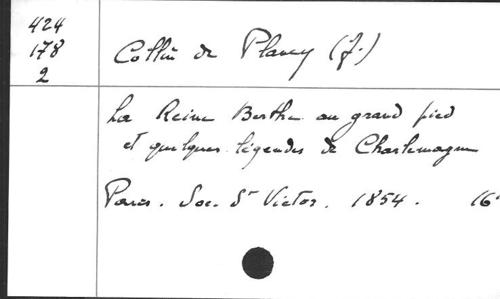 424
178
2
Collin de Plancy (J.)
La Reine Berthe au grand pied
et quelques légendes de Charlemagne
Paris. Soc. St Victor. 1854. 16°